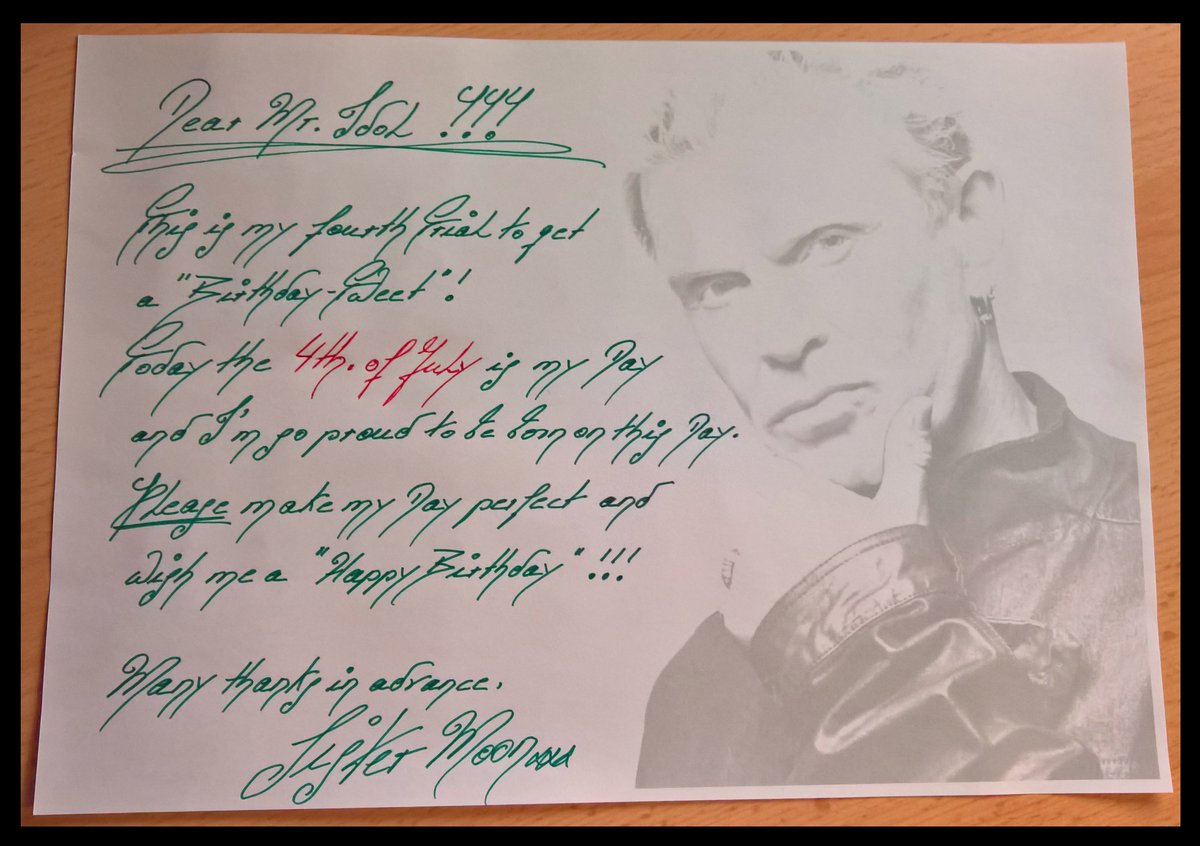 Dear Mr. Idol !!!
This is my fourth trial to get
a "Birthday-Tweet"!
Today the 4th. of July is my Day
and I'm so proud to be born on this Day.
Please make my Day perfect and
wish me a "Happy Birthday" !!!
Many thanks in advance.
Sister Moon xxx